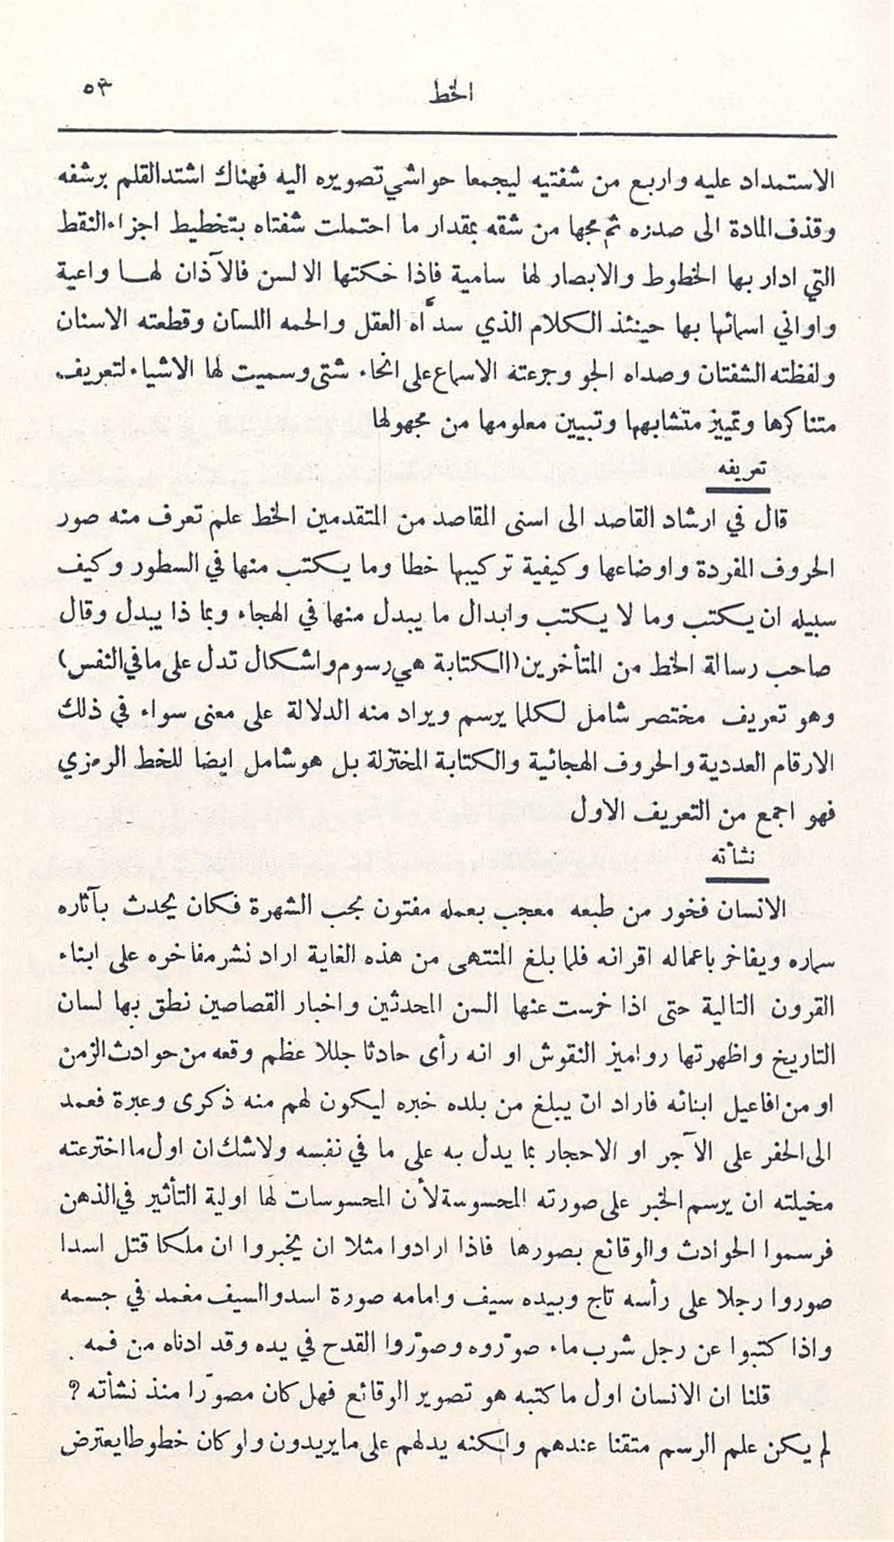 الخط ٥٣
الاستمداد عليه واربع من شفتيه ليجمعا حواشي تصويره اليه فهناك اشتدالقلم برشفه
وقذف المادة الى صدره ثم مجها من شقه بمقدار ما احتملت شفتاه بتخطيط اجزاء النقط
التي ادار بها الخطوط والابصار لها سامية فاذا حكتها الالسن فالآذان لها واعية
واواني اسمائها بها حينئذ الكلام الذي سدّاه العقل والحمه اللسان وقطعته الاسنان
ولفظته الشفتان وصداه الجو وجرعته الاسماع على انحاء شتى وسميت لها الاشياء لتعريف
متناكرها وتمييز متشابهها وتبيين معلومها من مجهولها
تعريفه
قال في ارشاد القاصد الى اسنى المقاصد من المتقدمين الخط علم تعرف منه صور
الحروف المفردة واوضاعها وكيفية تركيبها خطا وما يكتب منها في السطور وكيف
سبيله ان يكتب وما لا يكتب وابدال ما يبدل منها في الهجاء وبما ذا يبدل وقال
صاحب رسالة الخط من المتأخرين (الكتابة هي رسوم واشكال تدل على ما في النفس)
وهو تعريف مختصر شامل لكلما يرسم ويراد منه الدلالة على معنى سواء في ذلك
الارقام العددية والحروف الهجائية والكتابة المختزلة بل هو شامل ايضا للخط الرمزي
فهو اجمع من التعريف الاول
نشأته
الانسان فخور من طبعه معجب بعمله مفتون بحب الشهرة فكان يحدث بآثاره
سماره ويفاخر باعماله اقرانه فلما بلغ المنتهى من هذه الغاية اراد نشر مفاخره على ابناء
القرون التالية حتى اذا خرست عنها السن المحدثين واخبار القصاصين نطق بها لسان
التاريخ واظهرتها رواميز النقوش او انه رأى حادثا جللا عظم وقعه من حوادث الزمن
او من افاعيل ابنائه فاراد ان يبلغ من بلده خبره ليكون لهم منه ذكرى وعبرة فعمد
الى الحفر على الآجر او الاحجار بما يدل به على ما في نفسه ولاشك ان اول ما اخترعته
مخيلته ان يرسم الخبر على صورته المحسوسة لأن المحسوسات لها اولية التأثير في الذهن
فرسموا الحوادث والوقائع بصورها فاذا ارادوا مثلا ان يخبروا ان ملكا قتل اسدا
صوروا رجلا على رأسه تاج وبيده سيف وامامه صورة اسد والسيف مغمد في جسمه
واذا كتبوا عن رجل شرب ماء صوّروه وصوّروا القدح في يده وقد ادناه من فمه
قلنا ان الانسان اول ما كتبه هو تصوير الوقائع فهل كان مصوّرا منذ نشأته ؟
لم يكن علم الرسم متقنا عندهم ولكنه يدلهم على ما يريدون ولو كان خطوطا يعترض